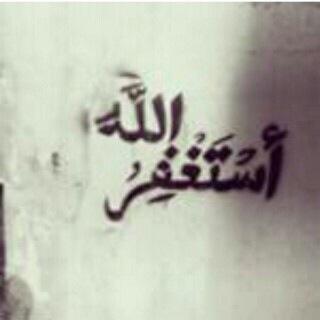 أَسْتَغْفِرُ
اللَّهَ